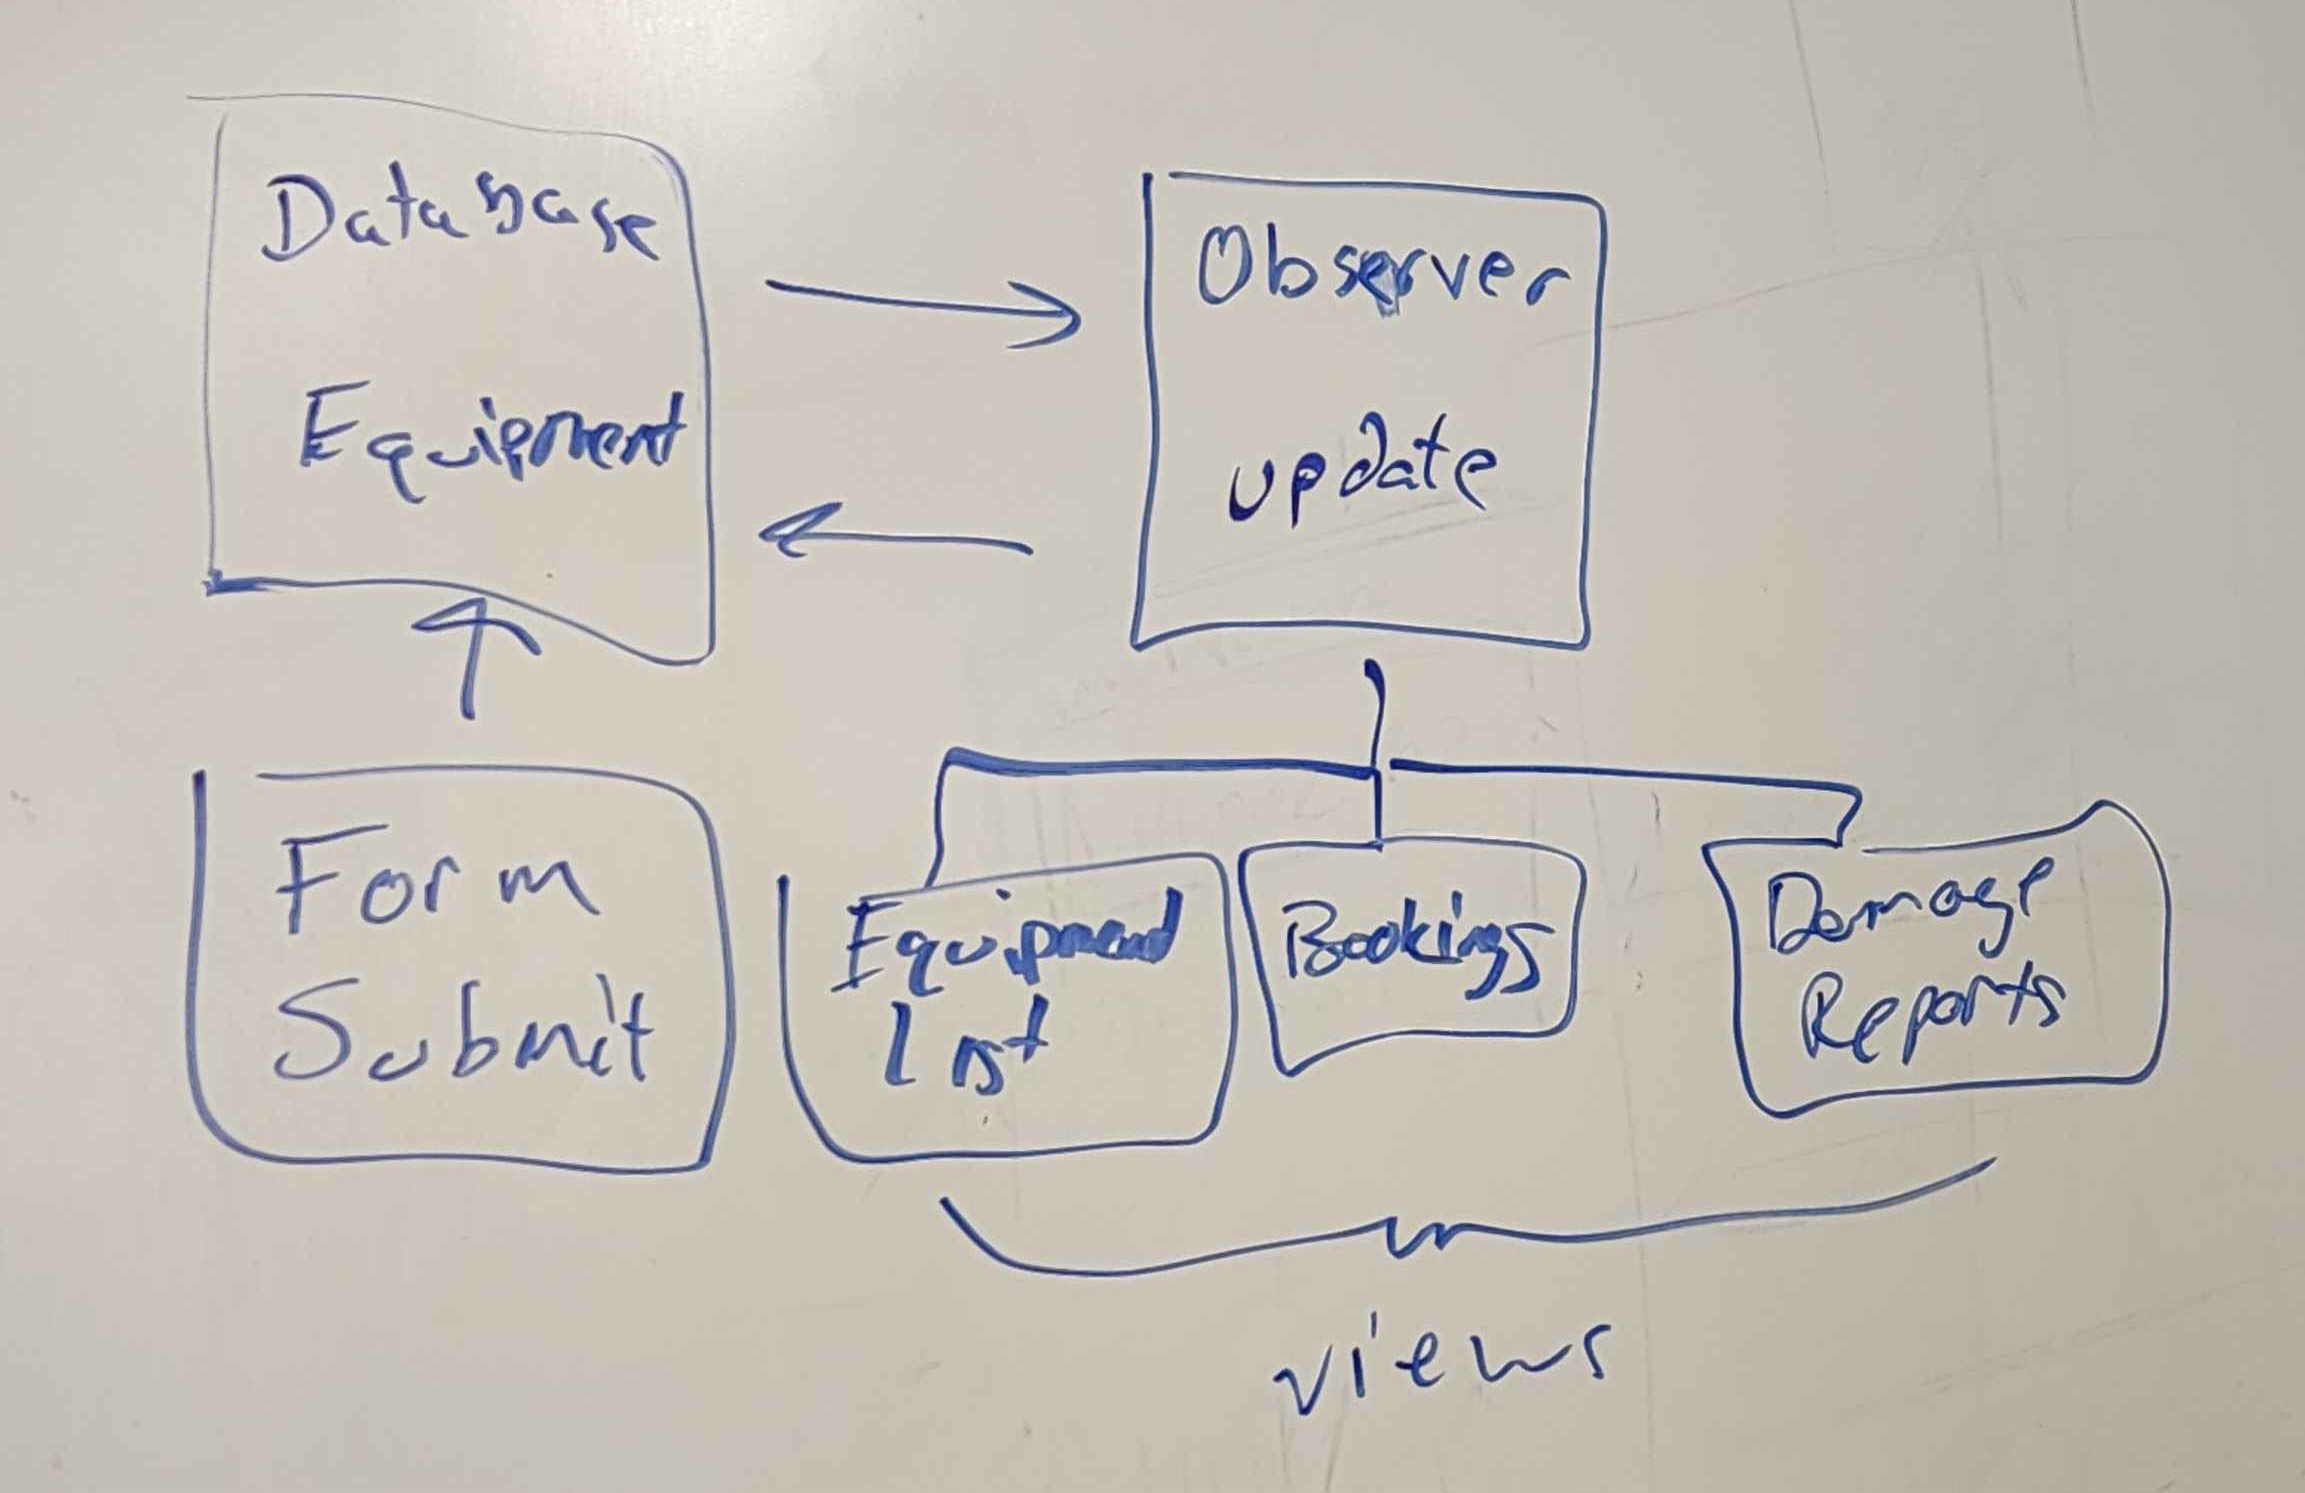 Database
Equipment
Observer
update
Form
Submit
Equipment
List
Bookings
Damage
Reports
views